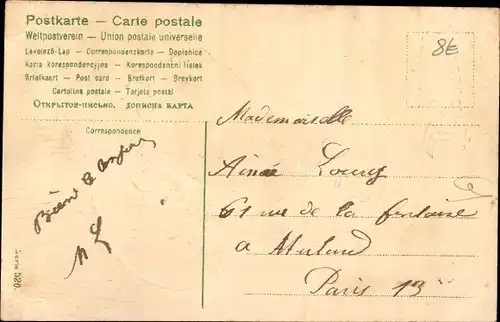 Postkarte — Carte postale
Weltpostverein — Union postale universelle
Levelező-Lap — Correspondenzkarte — Dopisnice
Karta korespondencyjna — Korespondenční lístek
Briefkaart — Post card — Brefkort — Brevkort
Cartolina postale — Tarjeta postal
Открытое-письмо. дописна карта
8€
Correspondence
Mademoiselle
Aimée Loury
61 rue de la fontaine
a
Paris 13
Serie 520.